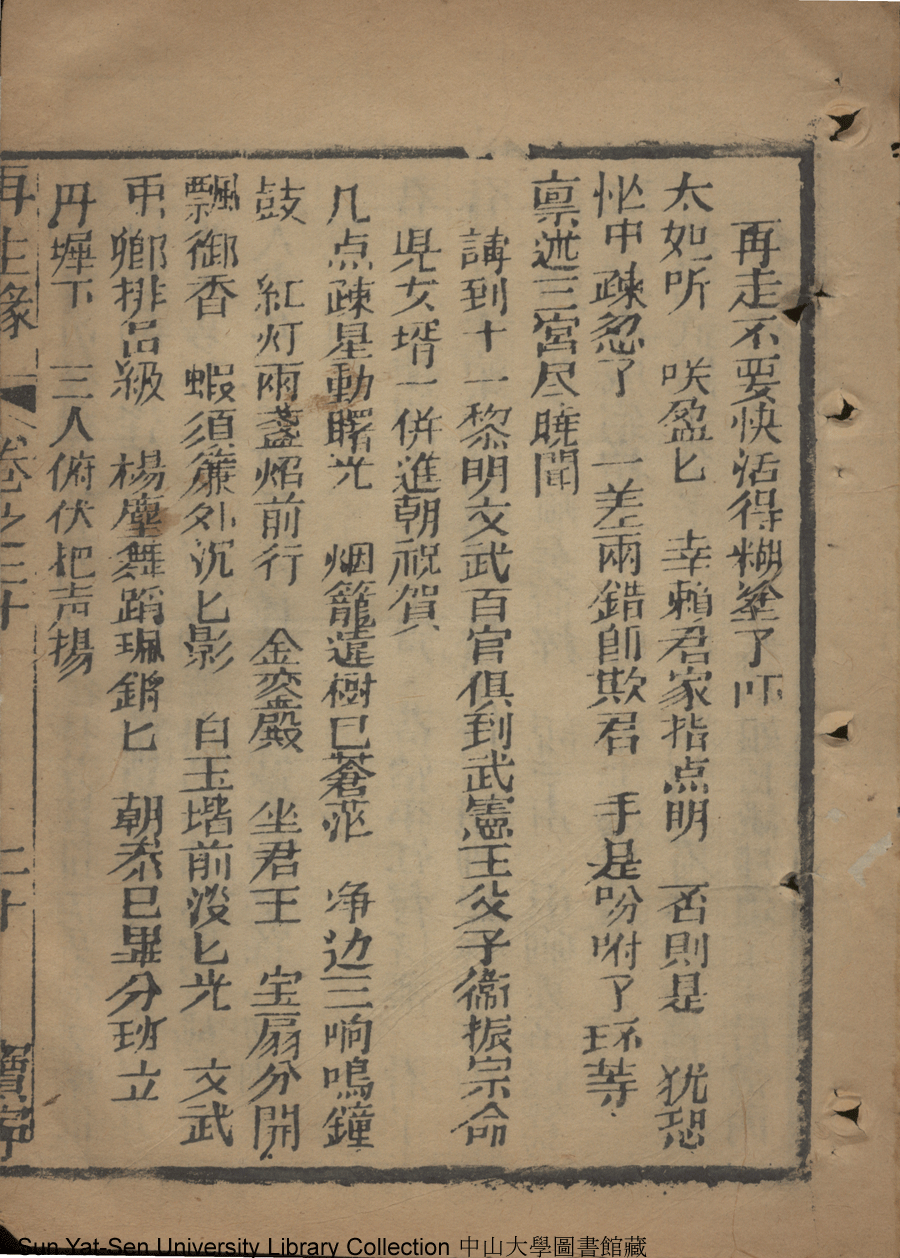 再走不要快活得糊塗了吓
太如听　咲盈匕　幸賴君家指点明　否則是　犹恐
忙中疎忽了　一差兩錯即欺君　手是吩咐了环等
禀述三宮尽曉聞
講到十一黎明文武百官俱到武憲王父子衞振宗命
児女壻一併進朝祝賀
几点疎星動曙光　烟籠遠樹已蒼茫　净边三响鳴鐘
鼓　紅灯兩盞炤前行　金銮殿　坐君王　宝扇分開
飄御香　蝦須簾外沉匕影　白玉堦前淡匕光　文武
両鄉排品級　楊塵舞蹈珮鏘匕　朝叅已畢分班立
丹墀下　三人俯伏把声揚
再生緣　卷之三十　二十　寶寧
Sun Yat-Sen University Library Collection 中山大學圖書館藏